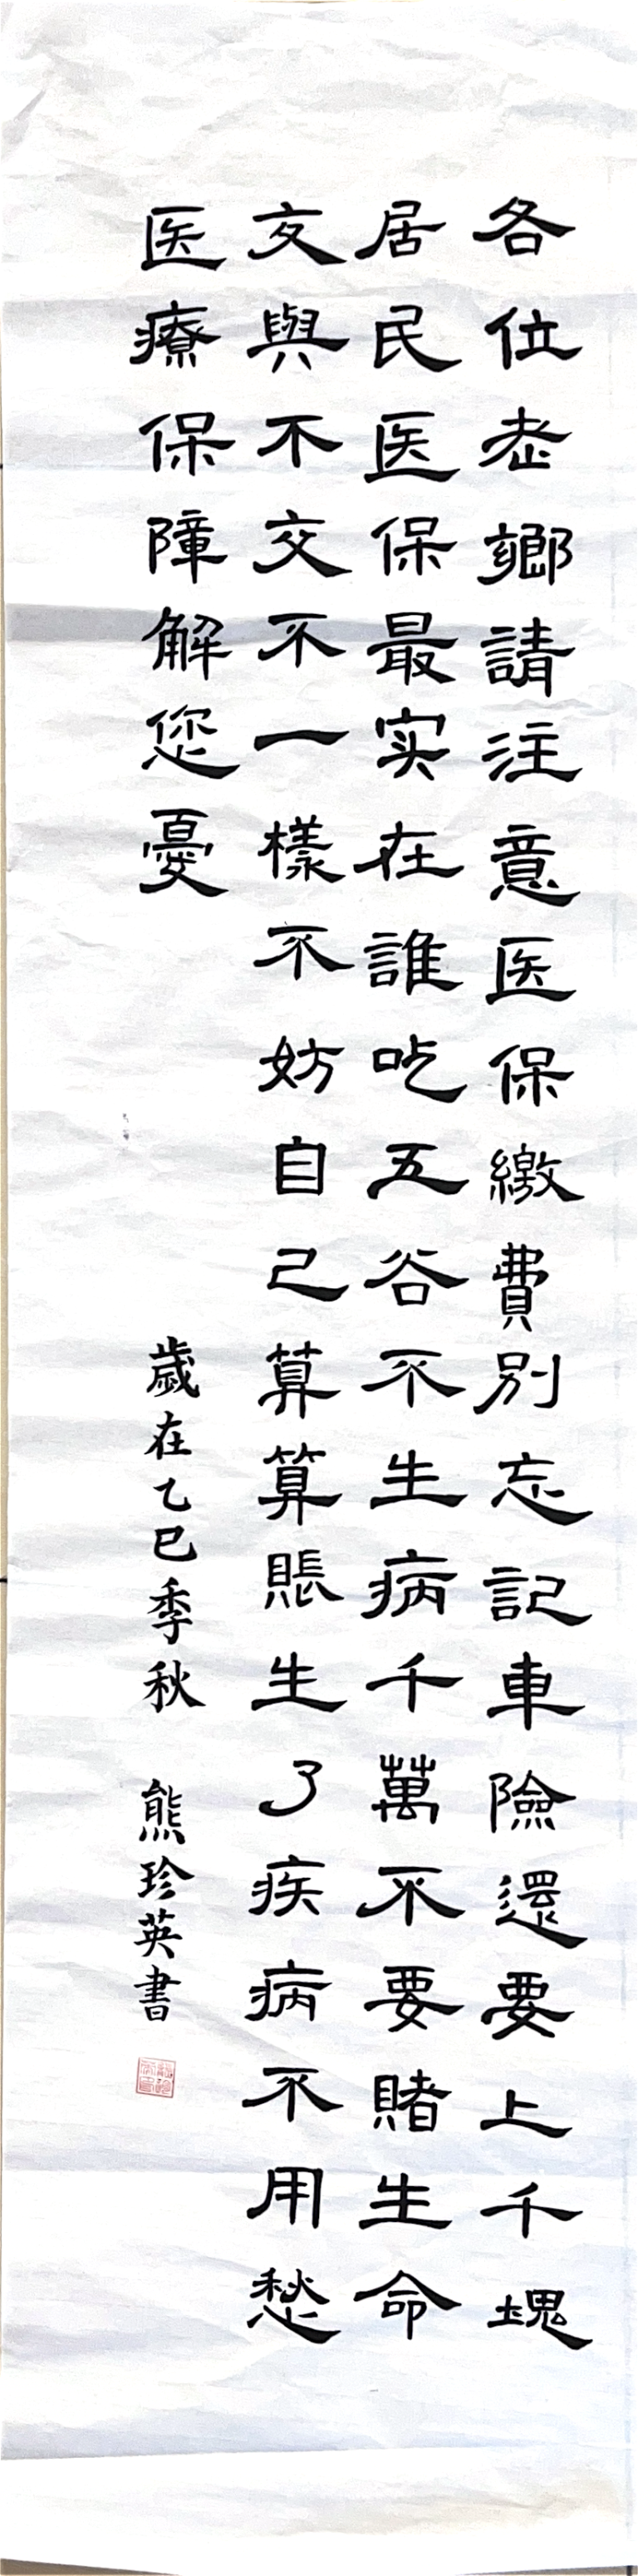 各位老鄉請注意医保繳費别忘記車險還要上千塊
居民医保最实在誰吃五谷不生病千萬不要賭生命
交與不交不一樣不妨自己算算賬生了疾病不用愁
医療保障解您憂
歲在乙巳季秋 熊珍英書